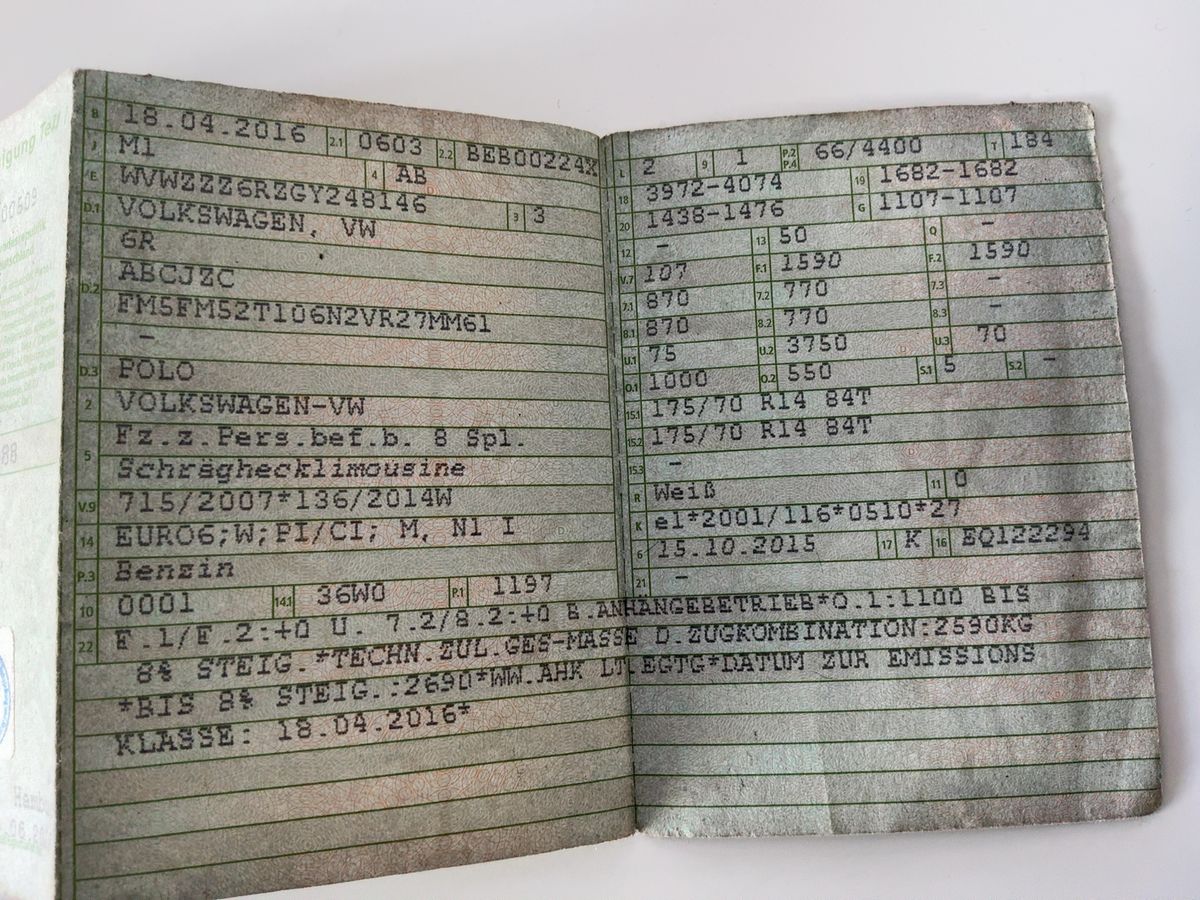 igung Teil
00609
Hamb
.06.80
B 18.04.2016 2.1 0603 2.2 BEB00224X
J M1 4 AB
E WVWZZZ6RZGY248146 3 3
D.1 VOLKSWAGEN, VW
6R
D.2 ABCJZC
FM5FM52T106N2VR27MM61
–
D.3 POLO
2 VOLKSWAGEN-VW
5 Fz.z.Pers.bef.b. 8 Spl.
Schräghecklimousine
V.9 715/2007*136/2014W
14 EURO6;W;PI/CI; M, N1 I
P.3 Benzin
10 0001 14.1 36W0 P.1 1197
L 2 9 1 P.2 P.4 66/4400 T 184
18 3972-4074 19 1682-1682
20 1438-1476 G 1107-1107
12 – 13 50 Q –
V.7 107 F.1 1590 F.2 1590
7.1 870 7.2 770 7.3 –
8.1 870 8.2 770 8.3 –
U.1 75 U.2 3750 U.3 70
O.1 1000 O.2 550 S.1 5 S.2 –
15.1 175/70 R14 84T
15.2 175/70 R14 84T
15.3 –
R Weiß 11 0
K e1*2001/116*0510*27
6 15.10.2015 17 K 16 EQ122294
21 –
22 F.1/F.2:+0 U. 7.2/8.2:+0 B.ANHÄNGEBETRIEB*O.1:1100 BIS
8% STEIG.*TECHN.ZUL.GES-MASSE D.ZUGKOMBINATION:2590KG
*BIS 8% STEIG.:2690*WW.AHK LT.EGTG*DATUM ZUR EMISSIONS
KLASSE: 18.04.2016*